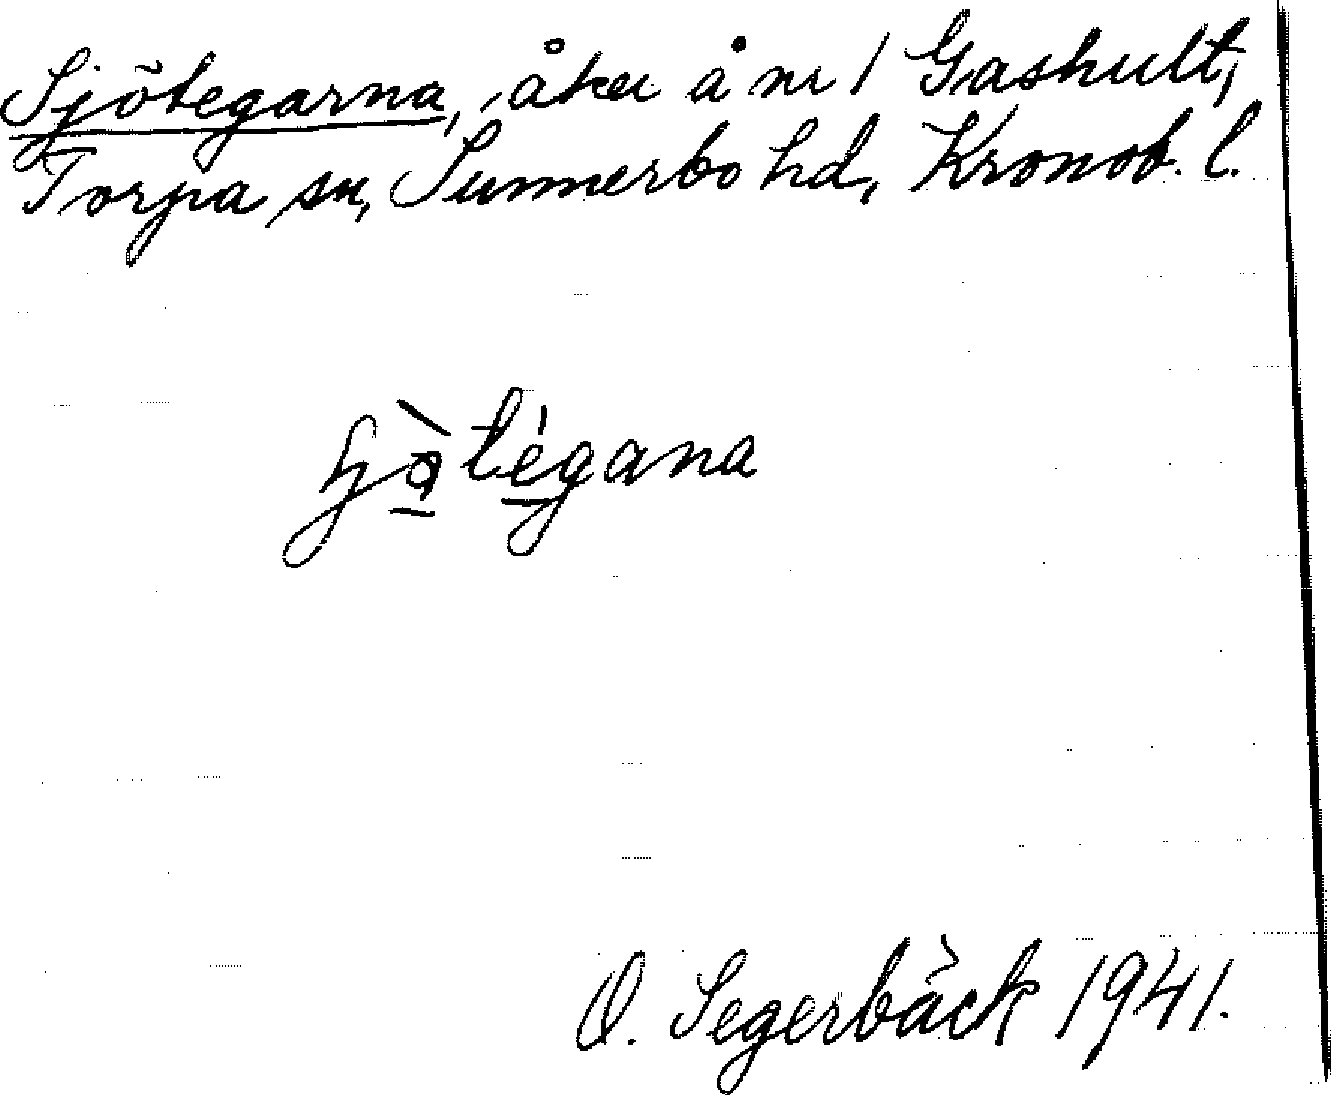 Sjötegarna, åker å nr 1 Gashult,
Torpa sn, Sunnerbo hd, Kronob. l.
O. Segerbäck 1941.